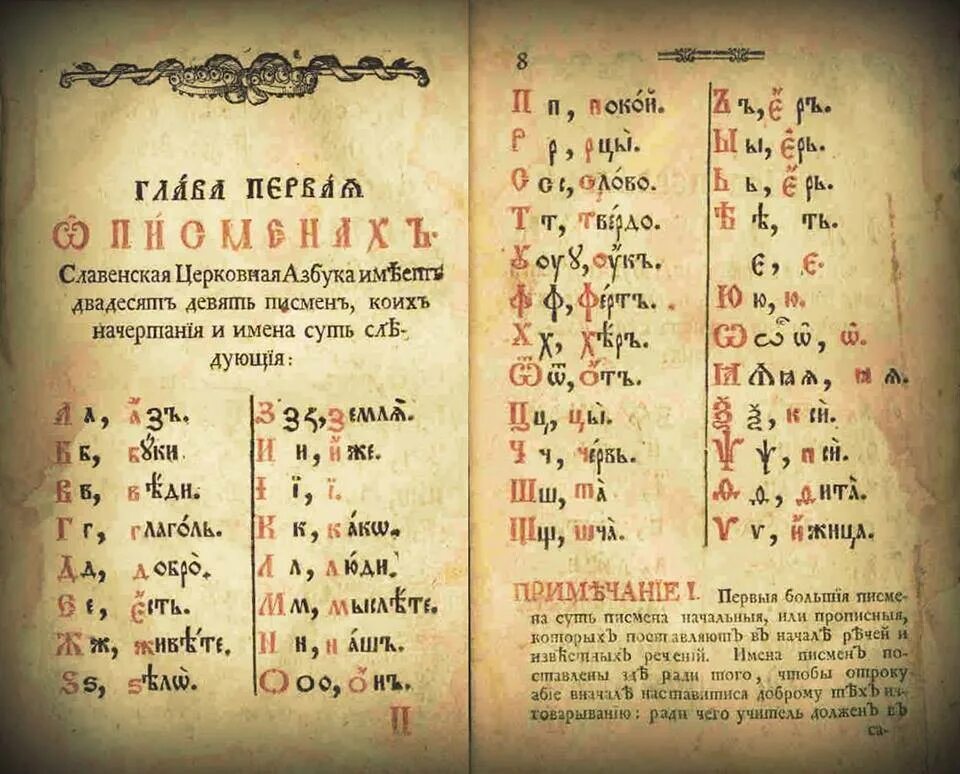 ГЛА́ВА ПЕРВА́Я
Ѽ ПИ́СМЕНАХЪ.
Славенская Церковная Азбука имѣетъ
двадесять девять писмен, коихъ
начертанія и имена суть слѣ-
дующія:
А а, а҆́зъ.
Б б, бꙋ́ки
В в, вѣ́ди.
Г г, глаго́ль.
Д д, добро̀.
Е е, є҆́сть.
Ж ж, живѣ́те.
Ѕ ѕ, ѕѣлѡ̀.
З з ꙁ, землѧ̀.
И и, и҆́же.
І ї, ї.
К к, ка́кѡ.
Л л, лю́ди.
М м, мыслѣ́те.
Н н, на́шъ.
О о ѻ, ѻ҆́нъ.
П
8
П п, поко́й.
Р р, рцы̀.
С с, сло́во.
Т т, тве́рдо.
Ꙋ оу ꙋ, оу҆́къ.
Ф ф, фе́ртъ.
Х х, хѣ́ръ.
Ѿ ѿ, ѻ҆́тъ.
Ц ц, цы̀.
Ч ч, че́рвь.
Ш ш, ша̀
Щ щ, шча̀.
Ъ ъ, є҆́ръ.
Ы ы, є҆ры.
Ь ь, є҆́рь.
Ѣ ѣ, ять.
Є, є.
Ю ю, ю.
Ѡ ѡ ѽ, ѡ҆.
Ꙗ ѧ ꙗ ѧ, ꙗ ѧ.
Ѯ ѯ, ксѝ.
Ѱ ѱ, псѝ.
Ѳ ѳ, ѳита̀.
Ѵ ѵ, и҆́жица.
ПРИМѢЧАНІЕ I. Первыя большія писме-
на суть писмена начальныя, или прописныя,
которыхъ поставляютъ въ началѣ рѣчей и
извѣстныхъ реченій. Имена писменъ по-
ставлены здѣ ради того, чтобы отроку
абіе вначалѣ наставитися доброму тѣхъ из-
товарыванію: ради чего учитель долженъ въ
са-